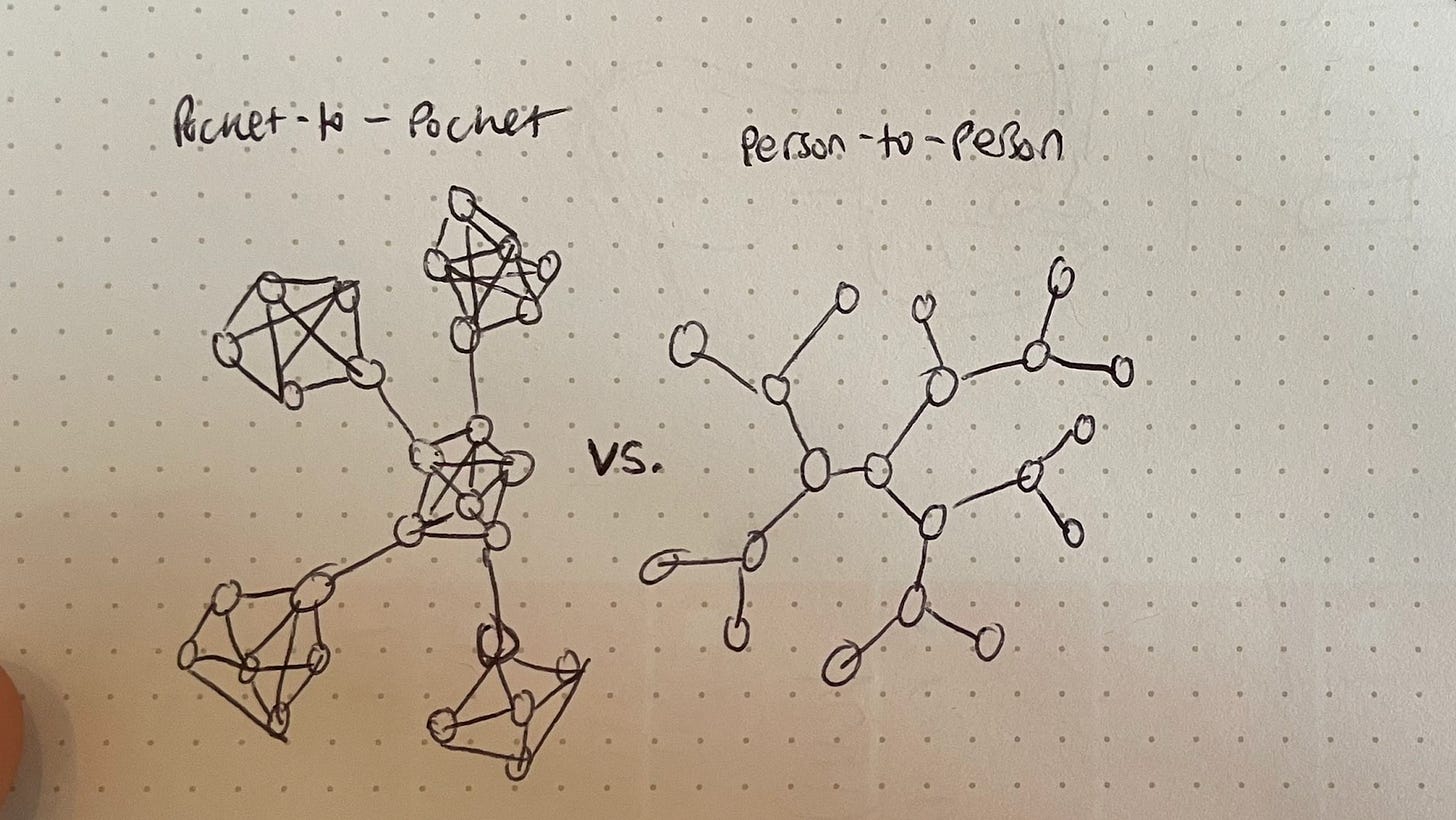 Pocket-to-Pocket
vs.
Person-to-Person